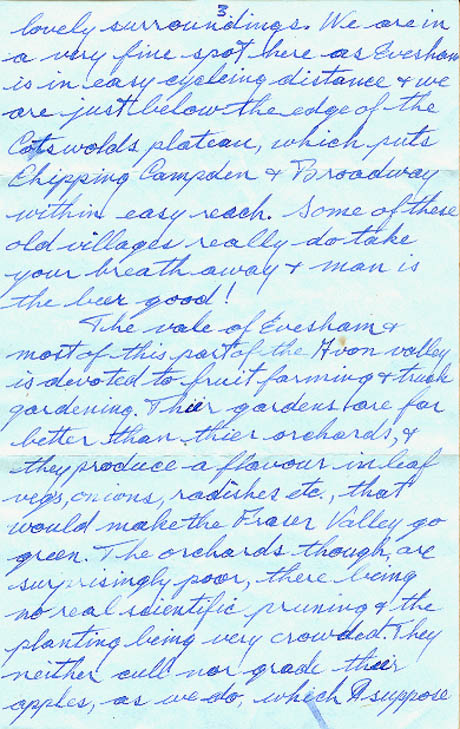 3
lovely surroundings. We are in
a very fine spot here as Evesham
is in easy cycleing distance & we
are just below the edge of the
Cotswolds plateau, which puts
Chipping Campden & Broadway
within easy reach. Some of these
old villages really do take
your breath away & man is
the beer good!
The vale of Evesham &
most of this part of the Avon valley
is devoted to fruit farming & truck
gardening. Thier gardens are far
better than thier orchards, &
they produce a flavour in leaf
vegs, onions, radishes etc., that
would make the Fraser Valley go
green. The orchards though, are
surprisingly poor, there being
no real scientific pruning & the
planting being very crowded. They
neither cull nor grade their
apples, as we do, which I suppose